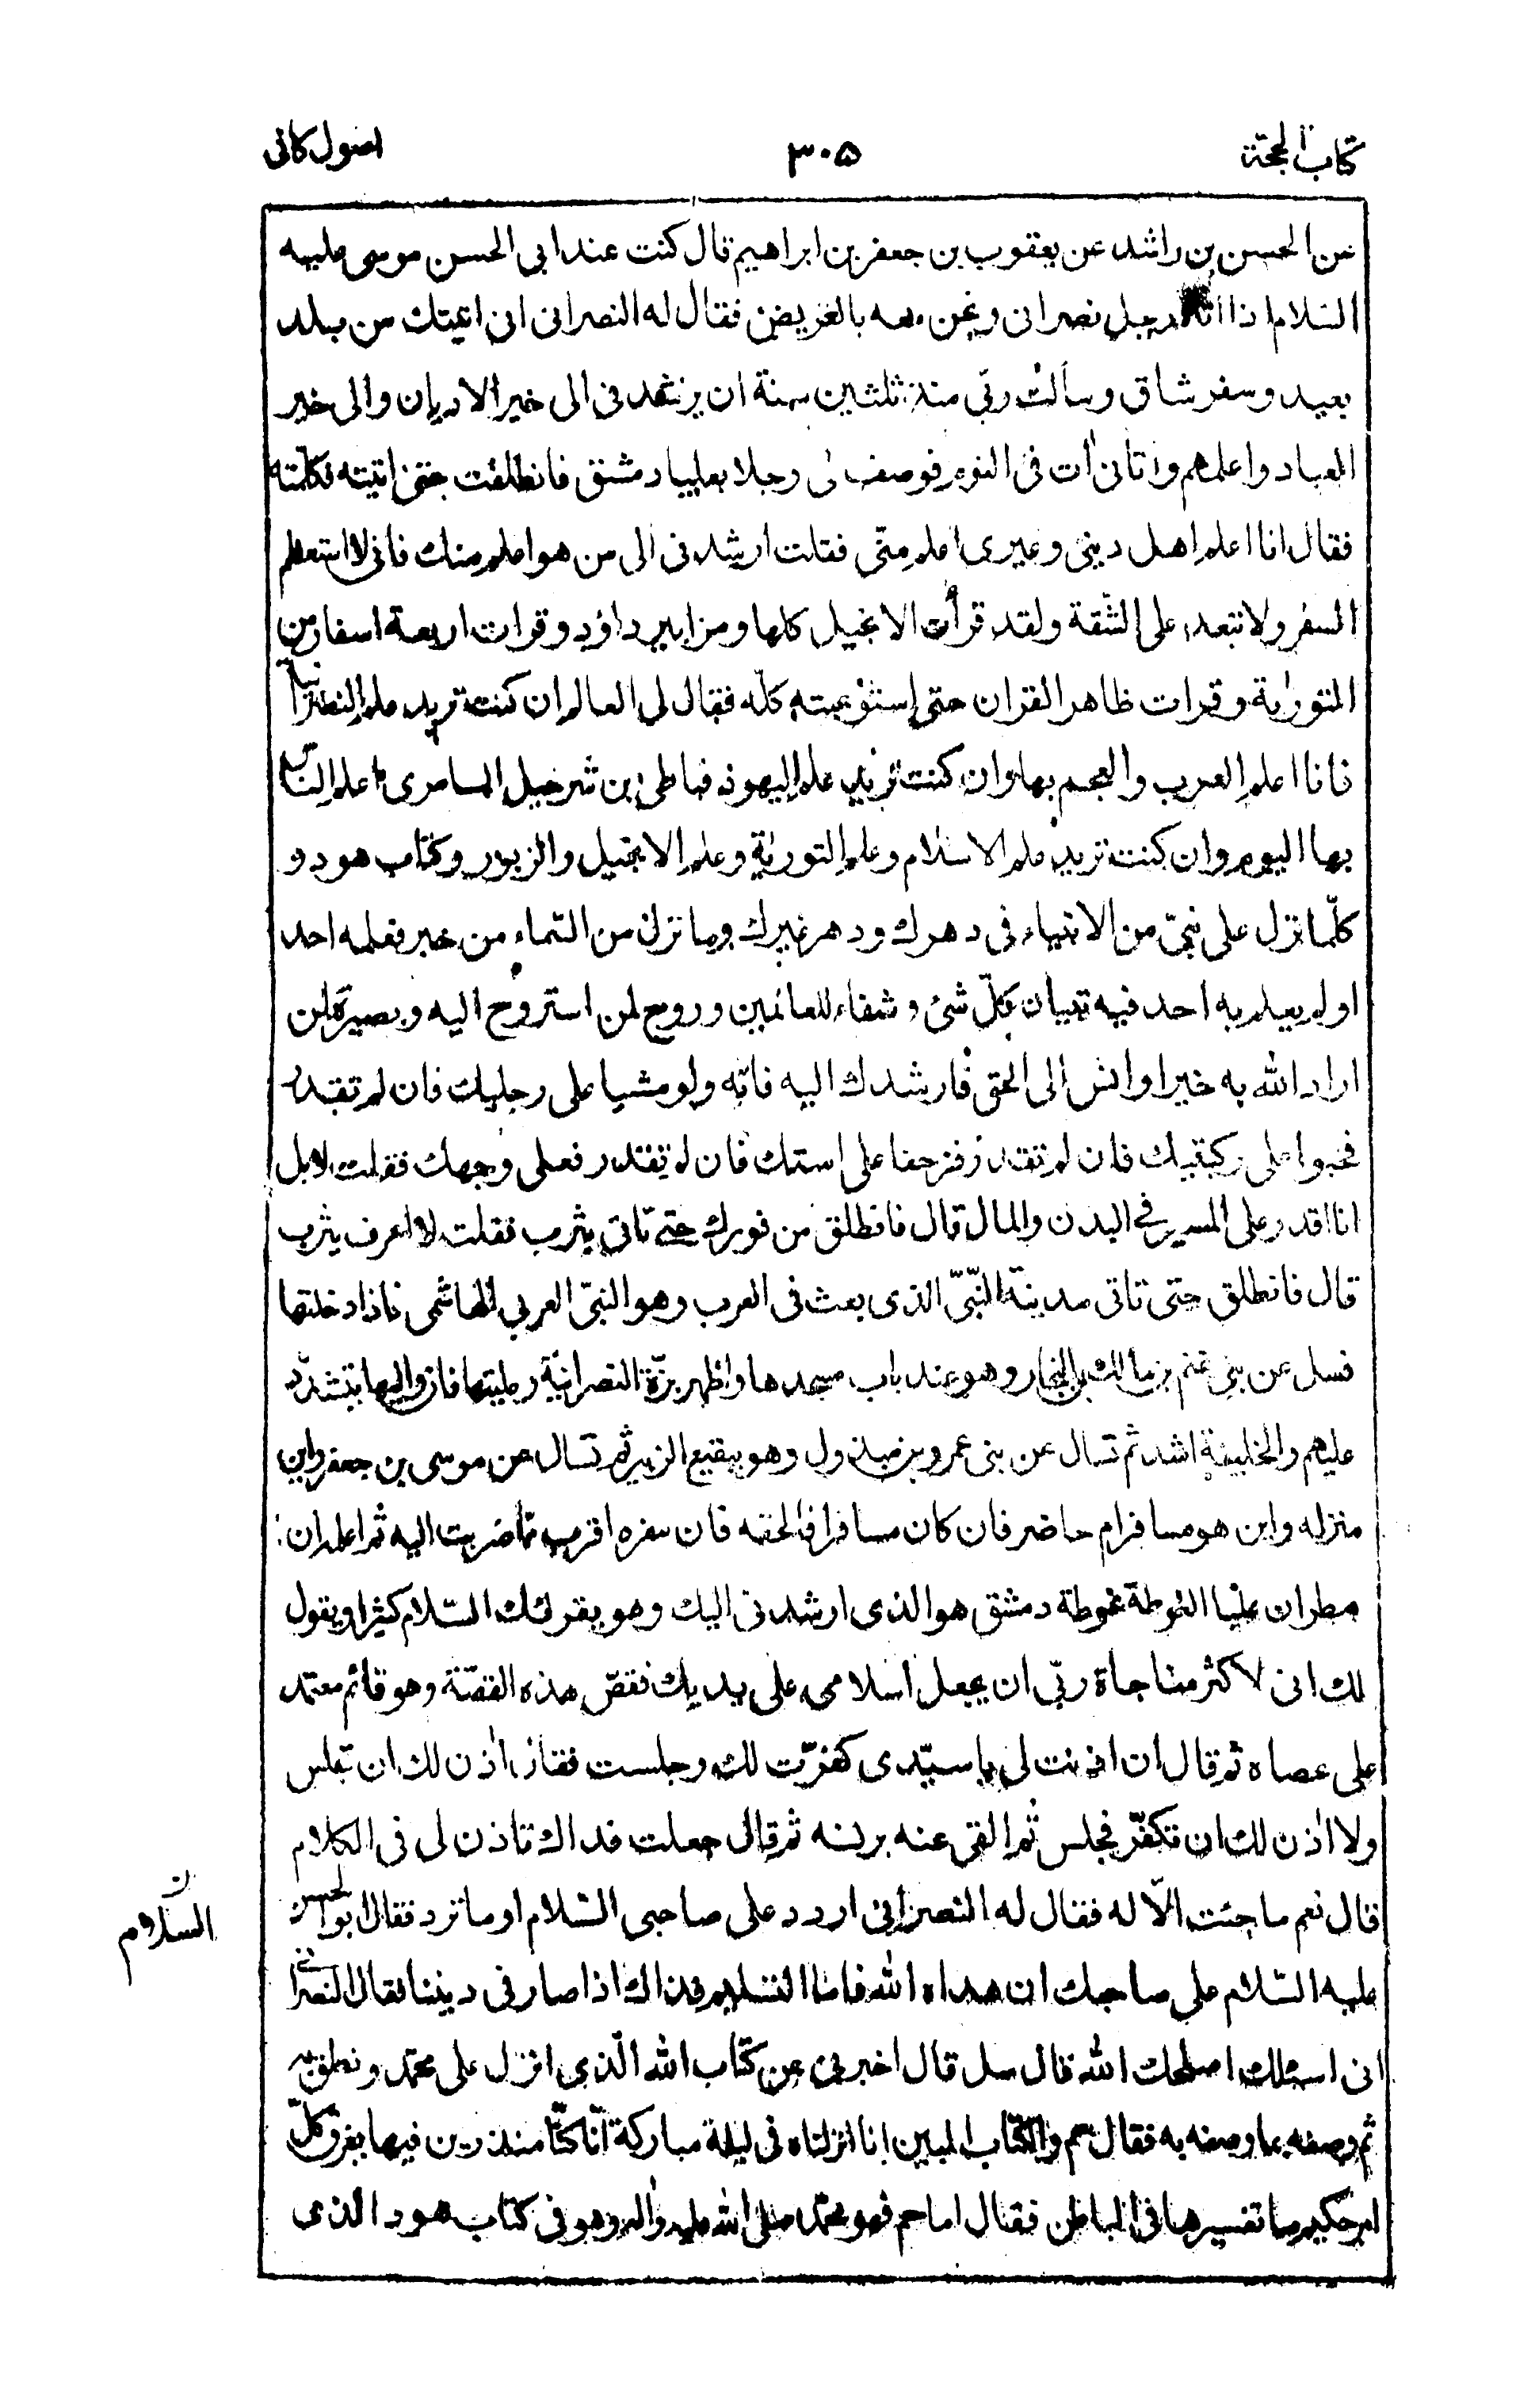 كتاب الحجة
۳۰۵
اصول كافى
عن الحسن بن راشد عن يعقوب بن جعفر بن ابراهيم قال كنت عند ابى الحسن موسى عليه
السلام اذا اتاه رجل نصرانى ونحن معه بالعريض فقال له النصرانى انى اتيتك من بلد
بعيد وسفر شاق وسألت ربّى منذ ثلثين سنة ان يرشدنى الى خير الاديان والى خير
العباد واعلمهم واتانى اٰت فى النوم فوصف لى رجلا بعليا دمشق فانطلقت حتى اتيته فكلّمته
فقال انا اعلم اهل دينى وغيرى اعلم منّى فقلت ارشدنى الى من هو اعلم منك فانى لا استعظم
السفر ولا تبعد على الشّقة ولقد قرأت الانجيل كلها ومزامير داؤد وقرات اربعة اسفار من
التورٰية وقرات ظاهر القران حتى استوعبته كلّه فقال لى العالم ان كنت تريد علم النصرانية
فانا اعلم العرب والعجم بها وان كنت تريد علم اليهود فباطى بن شرجيل السامرى اعلم الناس
بها اليوم وان كنت تريد علم الاسلام وعلم التورية وعلم الانجيل والزبور وكتاب هود و
كلّما نزل على نبىّ من الانبياء فى دهرك ودهر غيرك وما نزل من السّماء من خبر فعلمه احد
او لم يعلم به احد فيه تبيان كلّ شئ وشفاء للعالمين وروح لمن استروح اليه وبصيرة لمن
اراد الله به خيرا وانس الى الحق فارشدك اليه فاتّه ولو مشيا على رجليك فان لم تقدر
فحبوا على ركبتيك فان لم تقدر فزحفا على استك فان لم تقدر فعلى وجهك فقلت لا بل
انا اقدر على المسير فى البدن والمال قال فانطلق من فورك حتى تاتى يثرب فقلت لا اعرف يثرب
قال فانطلق حتى تاتى مدينة النّبىّ الذى بعث فى العرب وهو النبىّ العربى الهاشمى فاذا دخلتها
فسل عن بنى غنم بن مالك بن النجار وهو عند باب مسجدها واظهر بزّة النصرانيّة وحليتها فان واليها يتشدّد
عليهم والخليفة اشد ثم تسال عن بنى عمرو بن مبذول وهو ببقيع الزبير ثم تسال عن موسى بن جعفر واين
منزله واين هو مسافر ام حاضر فان كان مسافرا فالحقه فان سفره اقرب مما ضربت اليه ثم اعلمه ان
مطران عليا الغوطة غوطة دمشق هو الذى ارشدنى اليك وهو يقرئك السّلام كثيرا ويقول
لك انى لاكثر مناجاة ربّى ان يجعل اسلامى على يديك فقصّ هذه القصّة وهو قائم معتمد
على عصاه ثم قال ان اذنت لى يا سيّدى كفّرت لك وجلست فقال اٰذن لك ان تجلس
ولا اٰذن لك ان تكفّر فجلس ثم القى عنه برنسه ثم قال جعلت فداك تاذن لى فى الكلام
قال نعم ما جئت الّا له فقال له النصرانى اردد على صاحبى السّلام او ما ترد فقال ابو الحسن
عليه السّلام على صاحبك ان هداه الله فاما التسليم فذاك اذا صار فى ديننا فقال النصرانى
انى اسئلك اصلحك الله قال سل قال اخبرنى عن كتاب الله الّذى انزل على محمّد ونطق به
ثم وصفه بما وصفه به فقال حم والكتاب المبين انا انزلناه فى ليلة مباركة انّا كنّا منذرين فيها يفرق كلّ
امر حكيم ما تفسيرها فى الباطن فقال اما حم فهو محمّد صلى الله عليه واله وهو فى كتاب هود الذى
ن
السلام